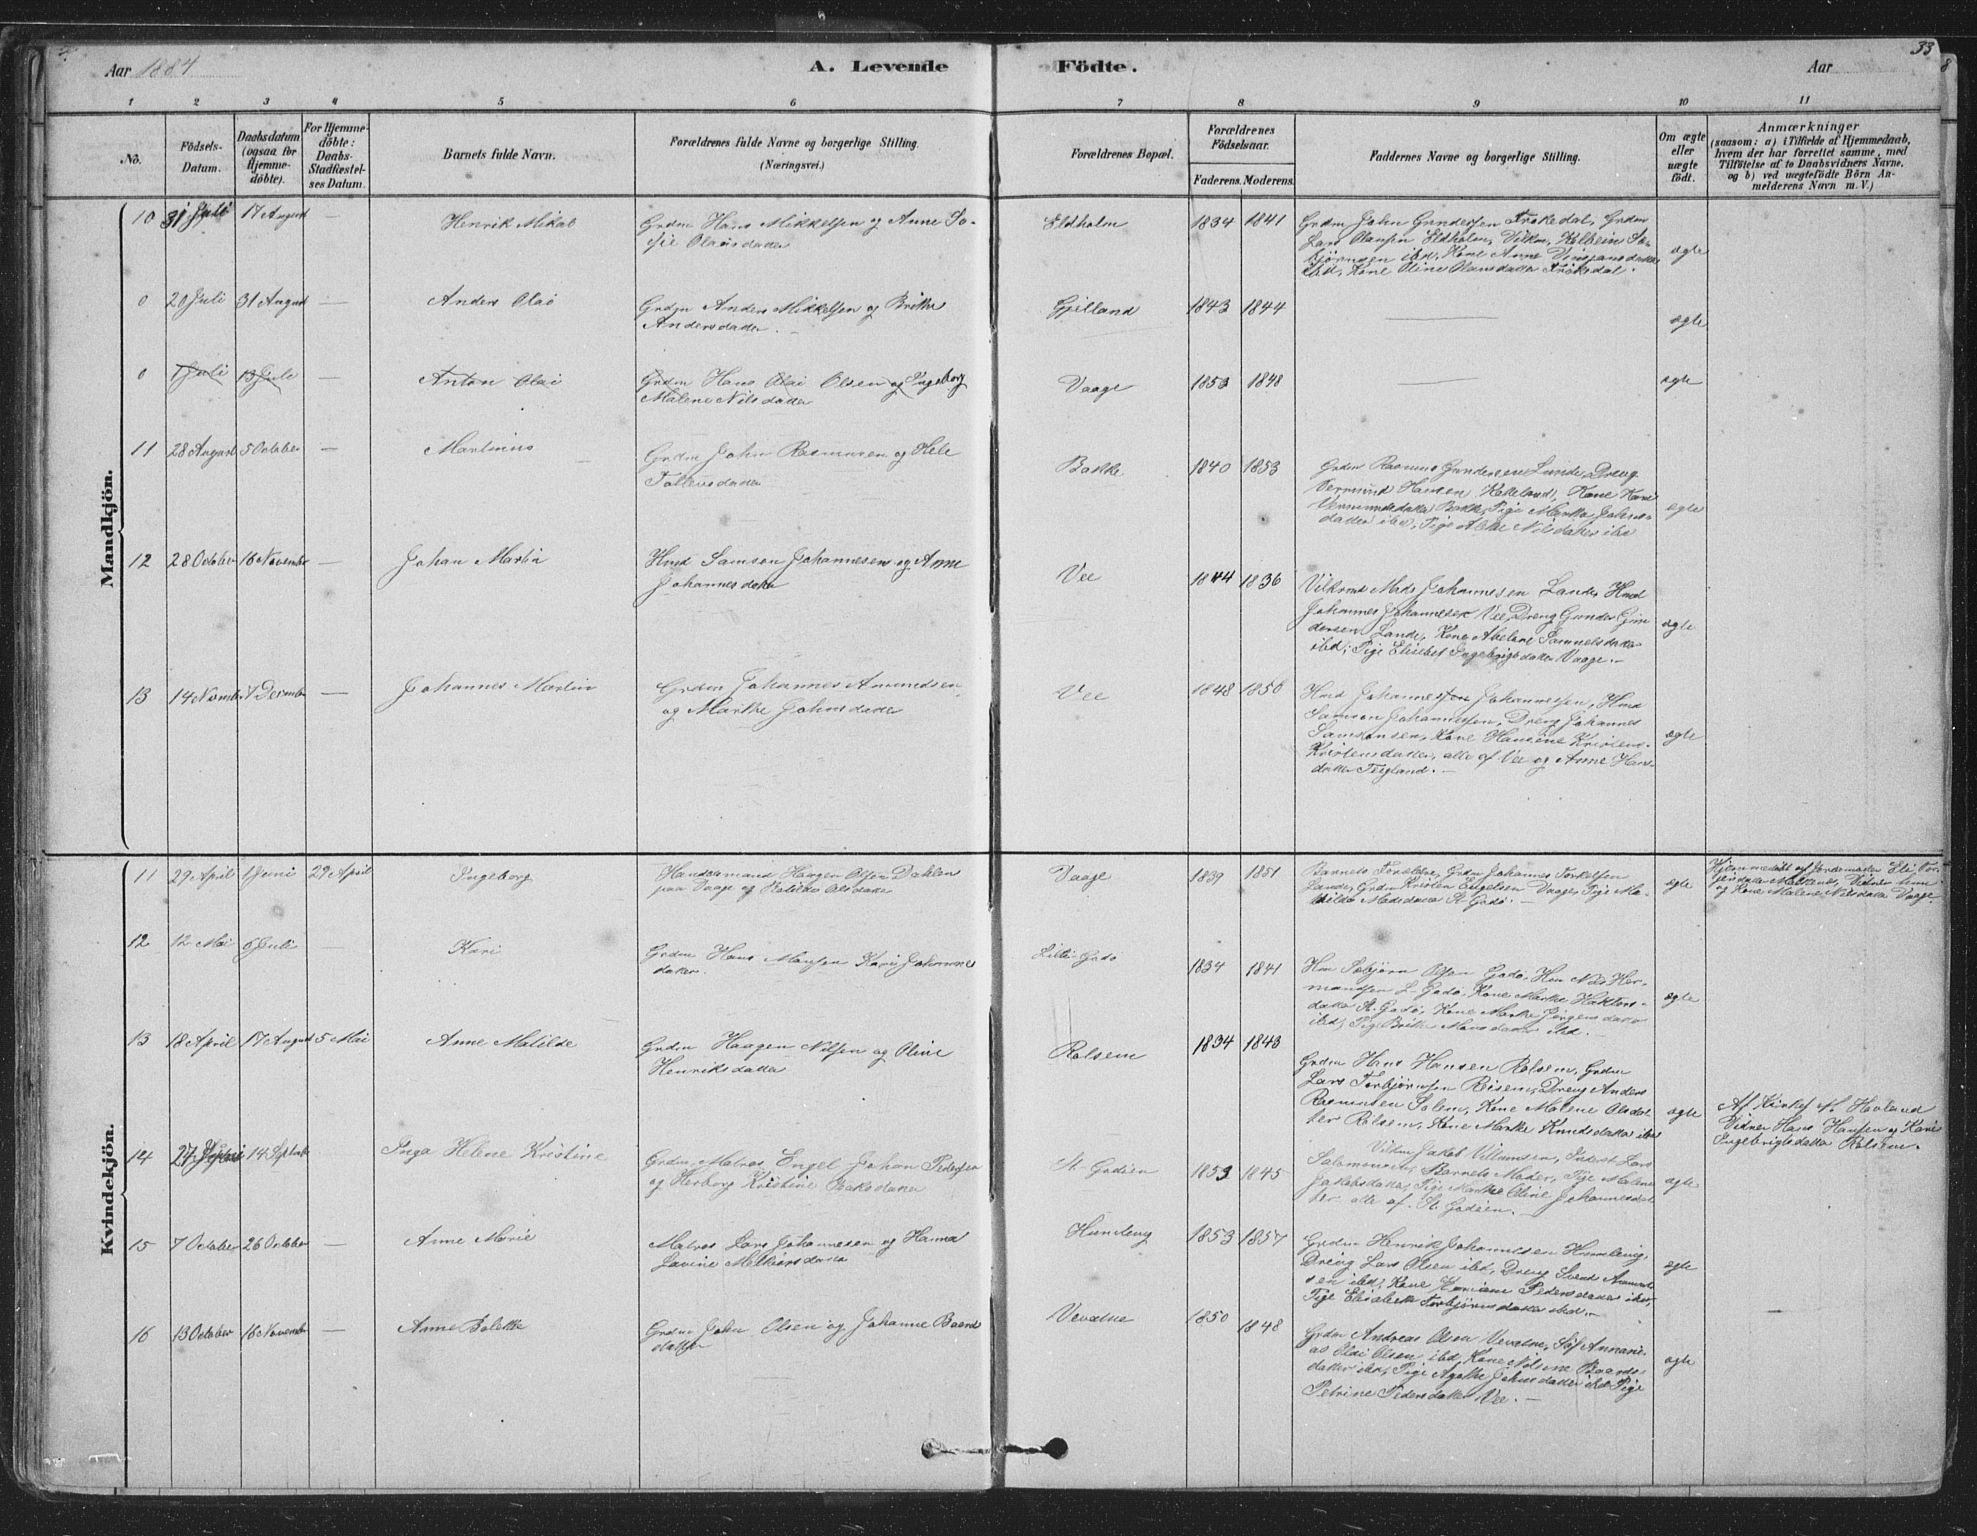 33
Aar 1884
A. Levende
Födte.
Aar
8
1 2 3 4 5 6 7 8 9 10 11
No.
Födsels-
Datum.
Daabsdatum
(ogsaa for
Hjemme-
döbte).
For Hjemme-
döbte:
Daabs-
Stadfæstel-
ses Datum.
Barnets fulde Navn.
Forældrenes fulde Navne og borgerlige Stilling.
(Næringsvei.)
Forældrenes Bopæl.
Forældrenes
Födselsaar.
Faderens. Moderens.
Faddernes Navne og borgerlige Stilling.
Om ægte
eller
uægte
födt.
Anmærkninger
(saasom: a) i Tilfælde af Hjemmedaab,
hvem der har forrettet samme, med
Tilföielse af to Daabsvidners Navne.
og b) ved uægtefödte Börn An-
melderens Navn m. V.)
Mandkjön.
10 31 Juli 17 August — Henrik Mikal
Grdm Hans Mikkelsen og Anne So-
fie Olausdatter
Eldholm 1834 1841
Grdm John Gundersen Friskedal, Grdm
Lars Olausen Eldholm,
ibd, Kone Oline Olausdatter
ægte
0 20 Juli 31 August — Anders Olai
Grdm Anders Mikkelsen og Brithe
Andersdatter.
Gjilland 1843 1844 — ægte
0 1 Juli 13 Juli — Anton Olai
Grdm Hans Olai Olsen og Ingeborg
Malene Nilsdatter
Vaage 1853 1848 — ægte
11 28 August 5 October — Martinius
Grdm John Rasmussen og Hele
Tollevsdatter
Bakke 1840 1853
Grdm Rasmus Gundersen Lunde, Dreng
Vermund Hansen Kakeland, Kone Kari
Vermundsdatter Bakke, Pige Marthe Johns-
datter ibd, Pige Nilsdatter ibd
ægte
12 28 October 16 November — Johan Martin
Hmd Samson Johannesen og Anne
Johannesdatter
Vee 1844 1836
Mads Johannesen Lande, Hmd
Johannes Johannesen Vee, Dreng Gunder Gun
dersen Lande, Kone Abelone Samuelsdatter
ibd, Pige Elisabet Ingebrigtsdatter Vaage.—
ægte
13 14 Novmbr 7 Decmbr — Johannes Martin
Grdm Johannes Amundsen
og Marthe Johnsdatter
Vee 1848 1850
Hmd Johannes Johannessen, Hmd
Samson Johannessen, Dreng Johannes
Samsonsen, Kone Hansine Kristens-
Kristensdatter, alle af Vee og Anne Hans-
datter Feigland.—
ægte
Kvindekjön.
11 29 April 1 Juni 29 April Ingeborg
Handelsmand Haagen Olsen Dahlen
paa Vaage og Olsdatter
Vaage 1839 1851
Barnets Forældre, Grdm Johannes Torkelsen
Lande, Grdm Kristen Engelsen Vaage, Pige Ma-
thilde Madsdatter St. Godö.—
ægte
Hjemmedöbt af Jordemoder Eli
og Kone Malene Nilsdatter Vaage
12 12 Mai 6 Juli — Kari
Grdm Hans Monsen Kari Johannes
datter.
Lille Godö 1834 1841
Hm Torbjörn Olsen Godö, Hm Nils Her-
mandsen L. Godö, Kone Marthe
datter St. Godö, Kone Marthe Jörgensdatter
ibd, Pige Brithe Monsdatter ibd.
ægte
13 18 April 17 August 5 Mai Anne Matilde
Grdm Haagen Nilsen og Oline
Henriksdatter
Rolsem 1834 1843
Grdm Hans Hansen Rolsem, Grdm
Lars Torbjörnsen Risem, Dreng Anders
Rasmussen Solem, Kone Malene Olsdat
ter Rolsem, Kone Marthe Knudsdatter ibd
ægte
Af Kirkes. M. Havland
Vidner Hans Hansen og Kari
Ingebrigtsdatter Rolsem.
14 27 14 Septmb Inga Helene Kristine
Grdm Matros Engel Johan Pedersen
og Herborg Kristine Baksdatter
St. Godöen 1853 1845
Vilkm Jakob Villumsen, Lars
Salomonsen, Barnets Moder, Pige Malene
Jakobsdatter, Pige Marthe Oline Johannesdat
ter alle af St. Godöen.
ægte
15 7 October 26 October — Anne Marie
Matros Lars Johannesen og Hanna
Lavine Melkiorsdatter
Humleng 1853 1857
Grdm Henrik Johannesen Humleng,
Dreng Lars Olsen ibd, Dreng Svend Amund
sen ibd, Kone Pedersdatter ibd,
Pige Elisabeth Torbjörnsdatter ibd.—
ægte
16 13 October 16 November — Anne Bolette
Grdm John Olsen og Johanne Baards
datter
Vevatne 1850 1848
Grdm Andreas Olsen Vevatne, Annani
as Olai Olsen ibd, Kone Nilsine Baards-
datter ibd, Pige Agathe Johnsdatter ibd Pige
Petrine Pedersdatter Vee.—
ægte